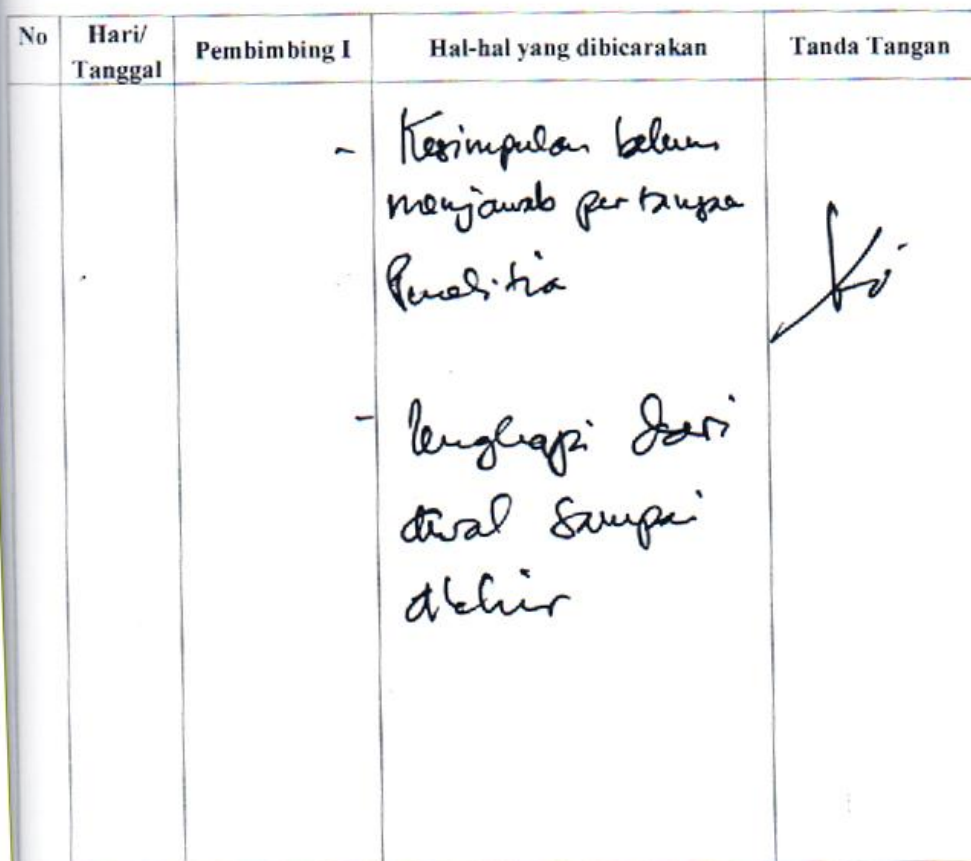 No Hari/ Pembimbing I Hal-hal yang dibicarakan Tanda Tangan
Tanggal
- Kesimpulan belum
menjawab pertanyaan
Penelitian
- lengkapi dari
awal sampai
akhir